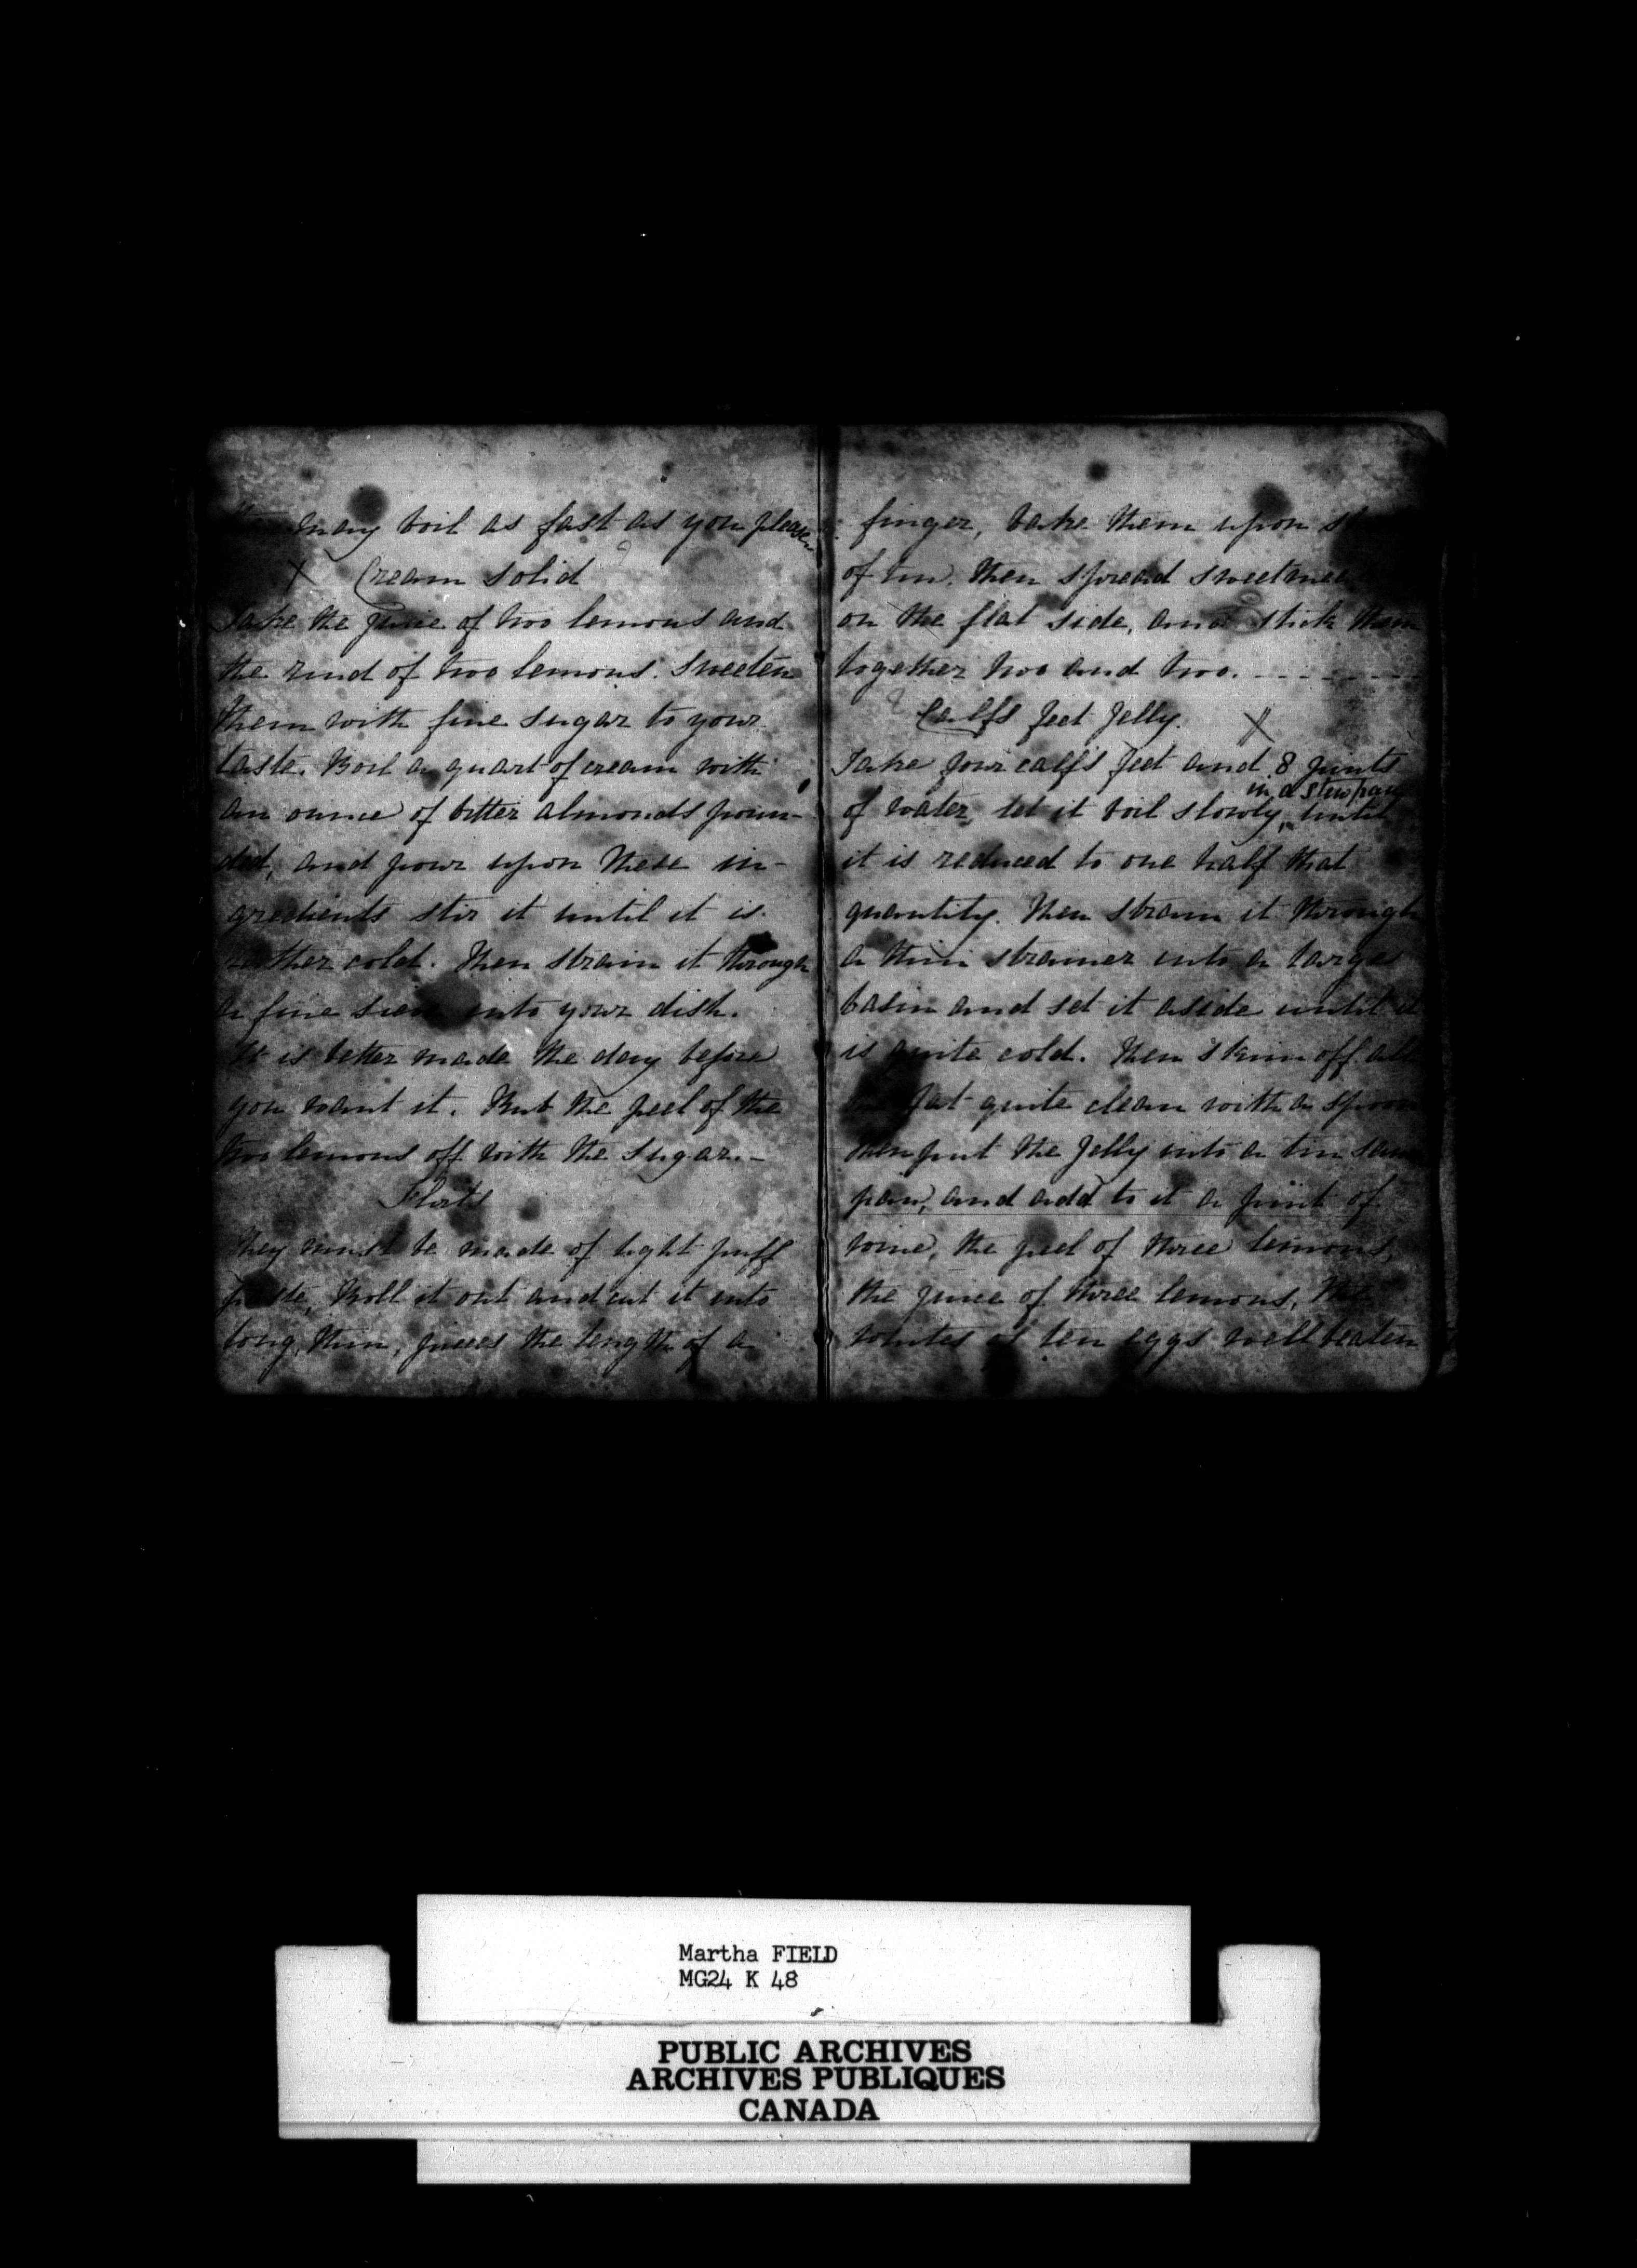 may boil as fast as you please
X Cream solid
Take the juice of two lemons and
the rind of two lemons. Sweeten
them with fine sugar to your
taste. Boil a quart of cream with
an ounce of bitter almonds poun-
ded, and pour upon these in-
gredients stir it until it is
rather cold. Then strain it through
a fine sieve into your dish.
It is better made the day before
you want it. Rub the peel of the
two lemons off with the sugar.-
They must be made of light puff
paste, Roll it out and cut it into
long, thin, pieces the length of a
finger, bake them upon
of tin, then spread
on the flat side, and stick them
together two and two. - - - - - - - -
Calfs feet Jelly. X
Take four calf's feet and 8 pints
in a stewpan
of water, let it boil slowly, until
it is reduced to one half that
quantity. Then strain it through
a thin strainer into a large
basin and set it aside until it
is quite cold. Then skim off all
fat quite clean with a spoon
then put the Jelly into a tin sauce
pan, and add to it a pint of
wine, the peel of three lemons,
the juice of three lemons, the
whites of ten eggs well beaten
Martha FIELD
MG24 K 48
PUBLIC ARCHIVES
ARCHIVES PUBLIQUES
CANADA